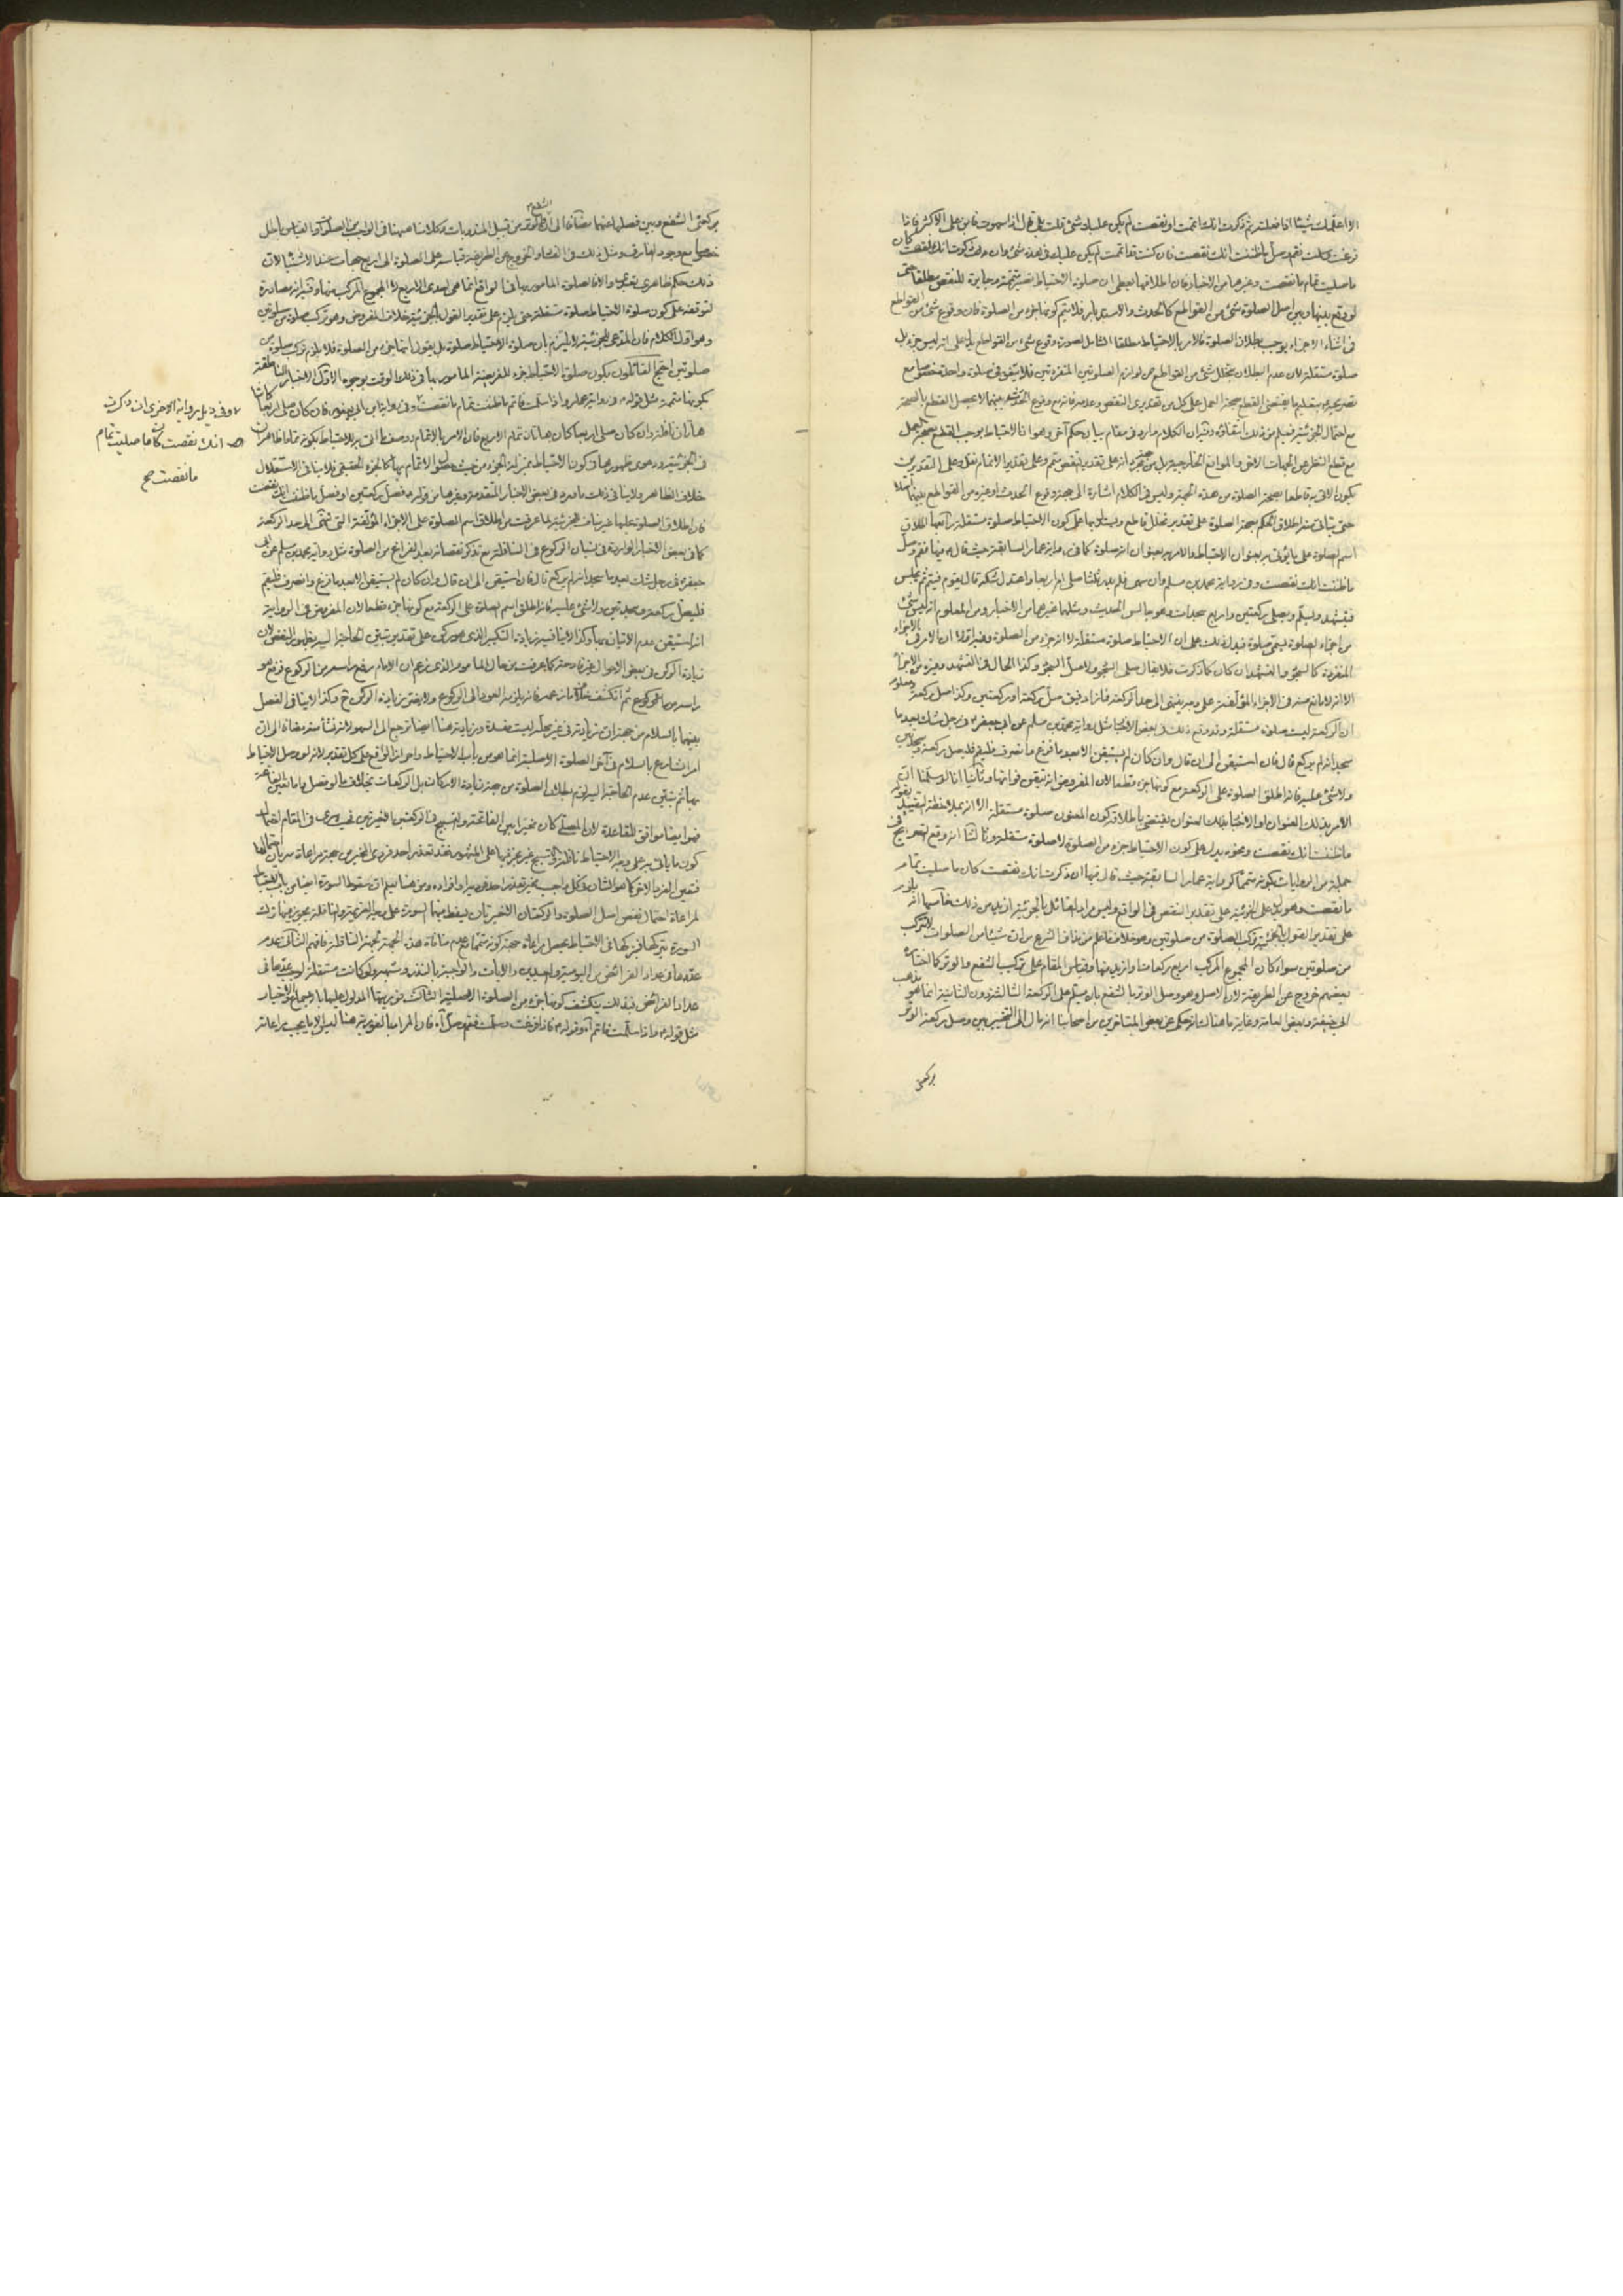 الا اعلمك شيئا اذا فعلته ثم ذكرت انك اتممت او نقصت لم يكن عليك شئ قلت بلى قال اذا سهوت فابن على الاكثر فاذا
فرغت وسلمت فقم فصل ما ظننت انك نقصت فان كنت قد اتممت لم يكن عليك في هذه شئ وان ذكرت انك نقصت كان
ما صليت تمام ما نقصت وغيرها من الاخبار فان اطلاقها يعطى ان صلوة الاحتياط متممة وجابرة للنقص مطلقا حتى
لو وقع بينها وبين اصل الصلوة شئ من القواطع كالحدث والاستدبار فلا يتم كونها جزء من الصلوة فان وقوع شئ من القواطع
في اثناء الاجزاء يوجب بطلان الصلوة فالامر بالاحتياط مطلقا الشامل لصورة وقوع شئ من القواطع دليل على انه ليس جزء بل
صلوة مستقلة لان عدم البطلان بتخلل شئ من القواطع من لوازم الصلوتين المنفردتين فلا يتفق في صلوة واحدة خصوصا مع
مع احتمال الجزئية فيعلم من ذلك انتفاؤه وفيه ان الكلام وارد في مقام بيان حكم آخر وهو ان الاحتياط يوجب القطع بصحة العمل
مع قطع النظر عن الجهات الاخر والموانع الخارجية بل من جهة انه على تقدير نقص متمم وعلى تقدير الاتمام نفل وعلى التقديرين
يكون الاتي به قاطعا بصحة الصلوة من هذه الجهة وليس في الكلام اشارة الى جهة وقوع الحدث او غيره من القواطع بينهما اصلا
حتى ينافى منه اطلاق الحكم بصحة الصلوة على تقدير تخلل قاطع ويستدل بها على كون الاحتياط صلوة مستقلة رابعها اطلاق
اسم الصلوة على ما يؤتى به بعنوان الاحتياط والامر به بعنوان انه صلوة كما في رواية عمار السابقة حيث قال فيها فقم وصل
ما ظننت انك نقصت وفي رواية محمد بن مسلم وان سهى فلم يدر ثلثا صلى ام اربعا واعتدل شكه قال يقوم فيتم ثم يجلس
فيتشهد ويسلم ويصلى ركعتين واربع سجدات وهو جالس الحديث ومثلهما غيرهما من الاخبار ومن المعلوم انه ليس شئ
من اجزاء الصلوة يسمى صلوة فيدل ذلك على ان الاحتياط صلوة مستقلة لا انه جزء من الصلوة وفيه اولا ان الامر في الاجزاء
المنفردة كالسجود والتشهد ان كان كما ذكرت فلا يقال صلى السجود ولا صل السجود وكذا الحال في التشهد وغيره من الاجزاء
الا انه لا مانع منه في الاجزاء المؤلفة على وجه ينتهى الى حد الركعة فما زاد فيق صل ركعة او ركعتين وكذا صل ركعة ومعلوم
ان الركعة ليست صلوة مستقلة وقد وقع ذلك في بعض الاخبار مثل رواية محمد بن مسلم عن ابي جعفر في رجل شك بعد ما
سجد انه لم يركع قال فان استيقن الى ان قال وان كان لم يستيقن الا بعد ما فرغ وانصرف فليقم فليصل ركعة وسجدتين
ولا شئ عليه فانه اطلق الصلوة على الركعة مع كونها جزء قطعا لان المفروض انه تيقن فواتها وثانيا انا لو سلمنا ان
الامر بذلك العنوان او الاخبار بذلك العنوان يقتضى باطلاقه كون المعنون صلوة مستقلة الا انه بملاحظة التقييد بقوله
ما ظننت انك نقصت ونحوه يدل على كون الاحتياط جزء من الصلوة لا صلوة مستقلة وثالثا انه وقع تصريح في
جملة من الروايات بكونه متمما كرواية عمار السابقة حيث قال فيها ان ذكرت انك نقصت كان ما صليت تمام
ما نقصت وهو يدل على الجزئية على تقدير النقص في الواقع وليس مراد القائل بالجزئية ازيد من ذلك خامسها انه يلزم
على تقدير القول بالجزئية تركب الصلوة من صلوتين وهو خلاف ما علم من مذاق الشرع من ان شيئا من الصلوات لا يتركب
من صلوتين سواء كان المجموع المركب اربع ركعات او ازيد منها وقياس المقام على تركب الشفع والوتر كما اختاره
بعضهم خروج عن الطريقة لان الاصل وهو وصل الوتر بالشفع بان يسلم على الركعة الثالثة دون الثانية انما هو مذهب
ابي حنيفة وبعض العامة وغاية ما هناك انه حكى عن بعض المتاخرين من اصحابنا انه مال الى التخيير بين وصل ركعة الوتر
بركعتى
بركعتى الشفع وبين فصلها عنهما مضافا الى ان الشفع والوتر من قبيل المندوبات وكلامنا هيهنا في الواجب من الصلوة والقياس باطل
خصوصا مع وجود الفارق ومثل ذلك في الفساد والخروج عن الطريقة قياسه على الصلوة الى اربع جهات عند الاشتباه لان
ذلك حكم ظاهري تعبدى والا فالصلوة المامور بها في الواقع انما هى احدى الاربع لا المجموع المركب منها وفيه انه مصادرة
لتوقفه على كون صلوة الاحتياط صلوة مستقلة حتى يلزم على تقدير القول بالجزئية خلاف المفروض وهو تركب صلوة من صلوتين
وهو اول الكلام فان المدعى للجزئية لا يلتزم بان صلوة الاحتياط صلوة بل يقول انها جزء من الصلوة فلا يلزم تركب صلوة من
صلوتين احتج القائلون بكون صلوة الاحتياط جزء للفريضة المامور بها في ذلك الوقت بوجوه الاول الاخبار الناطقة
بكونها متممة مثل قوله في رواية عمار واذا سلمت فاتم ما ظننت تمام ما نقصت وفي رواية ابن ابي يعفور فان كان صلى اربعا كانتا
هاتان نافلة وان كان صلى اربعا كان هاتان تمام الاربع فان الامر بالاتمام ووصف الاتى به للاحتياط بكونه تماما ظاهران
في الجزئية ودعوى ظهورهما في كون الاحتياط بمنزلة الجزء من حيث حصول الاتمام بها كالجزء الحقيقي فلا ينافى الاستقلال
خلاف الظاهر ولا ينافى ذلك ما ورد في بعض الاخبار المتقدمة وغيرها من قوله فصل ركعتين او فصل ما ظننت انك نقصت
فان اطلاق الصلوة عليها غير مناف للجزئية لما عرفت من اطلاق اسم الصلوة على الاجزاء المؤلفة التى تنتهى الى حد الركعة
كما في بعض الاخبار الواردة في نسيان الركوع في النافلة مع تذكر نقصانه بعد الفراغ من الصلوة مثل رواية محمد بن مسلم عن ابي
جعفر في رجل شك بعد ما سجد انه لم يركع قال فان استيقن الى ان قال وان كان لم يستيقن الا بعد ما فرغ وانصرف فليقم
فليصل ركعة وسجدتين ولا شئ عليه فانه اطلق اسم الصلوة على الركعة مع كونها جزء قطعا لان المفروض في الرواية
انه استيقن عدم الاتيان بها وكذا لا ينافيه زيادة التكبير الذى هو ركن على تقدير تبين الحاجة اليه بظهور النقص لان
زيادة الركن في بعض الاحوال غير قادحة كما عرفت من حال المأموم الذى زعم ان الامام رفع راسه من الركوع فرفع هو
راسه من الركوع ثم انكشف خلاف ما زعمه فانه يلزمه العود الى الركوع ولا يضر زيادة الركن ح وكذا لا ينافى الفصل
بينهما بالسلام من جهة ان زيادته في غير محله ليست مفسدة وزيادته هنا ايضا ترجع الى السهو لانه نشأ منه مضافا الى ان
امر الشارع بالسلام في آخر الصلوة الاصلية انما هو من باب الاحتياط واحراز الواقع على كل تقدير لانه لو وصل الاحتياط
بها ثم تبين عدم الحاجة اليه لزم بطلان الصلوة من جهة زيادة الاركان بل الركعات بخلاف ما لو فصل واما تعين الفاتحة
فهو ايضا موافق للقاعدة لان المصلى كان مخيرا بين الفاتحة والتسبيح في الركعتين الاخيرتين في المقام
كون ما ياتى به على وجه الاحتياط نافلة والتسبيح غير مجز فيها على المشهور فقد تعذر احد فردى المخير من جهة مراعاة سريان احتمالها
فتعين الفرد الاخر كما هو الشان في كل واجب مخير تعذر احد فرديه او افراده ومن هنا يعلم ان سقوط السورة ايضا من باب الاحتياط
لمراعاة احتمال نقص اصل الصلوة والركعتان الاخيرتان يسقط فيهما السورة على وجه العزيمة والنافلة يجوز فيها ترك
السورة فتركها في الاحتياط يحصل مراعاة جهة كونه متمما مع عدم منافاة هذه الجهة لجهة النافلة فافهم الثانى عدم
عدها في عداد الفرائض من اليومية والعيدين والايات والواجبة بالنذر وشبهه ولو كانت مستقلة لوجب عدها في
عداد الفرائض فبذلك ينكشف كونها جزء من الصلوة الاصلية الثالث فوريتها المدلول عليها بالاخبار
مثل قوله واذا سلمت فاتم اه وقوله فاذا فرغت وسلمت فقم فصل اه فان المراد بالفورية هنا ليس الا ما يجب مراعاته
وفي ذيل روايته الاخرى ان ذكرت
انك نقصت كان ما صليت تمام
ما نقصت صح